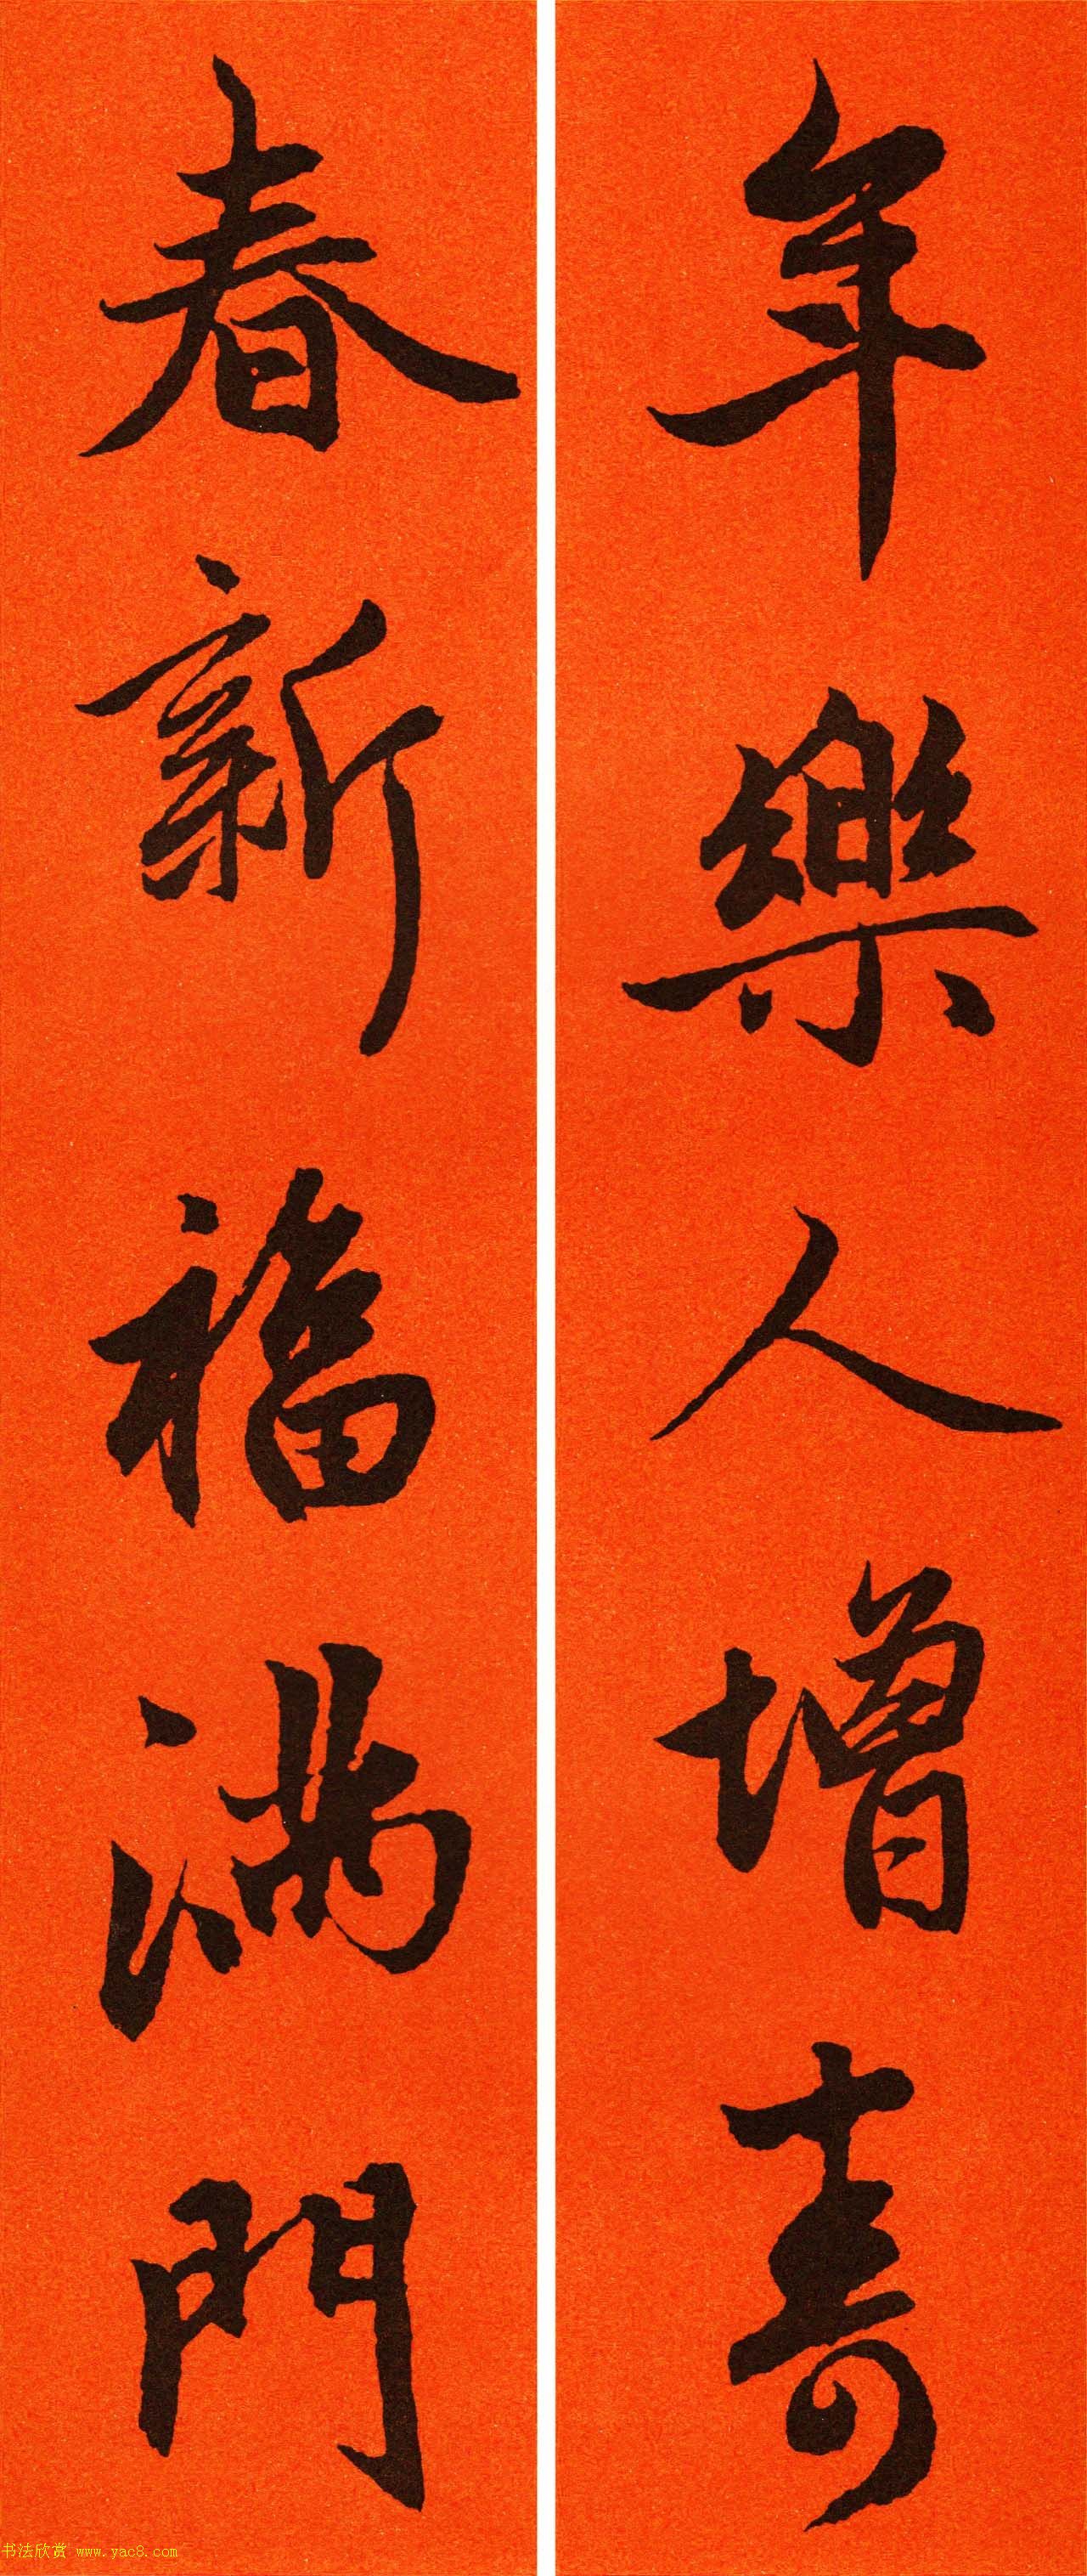 年樂人增壽
春新福满門
书法欣赏 www.yac8.com